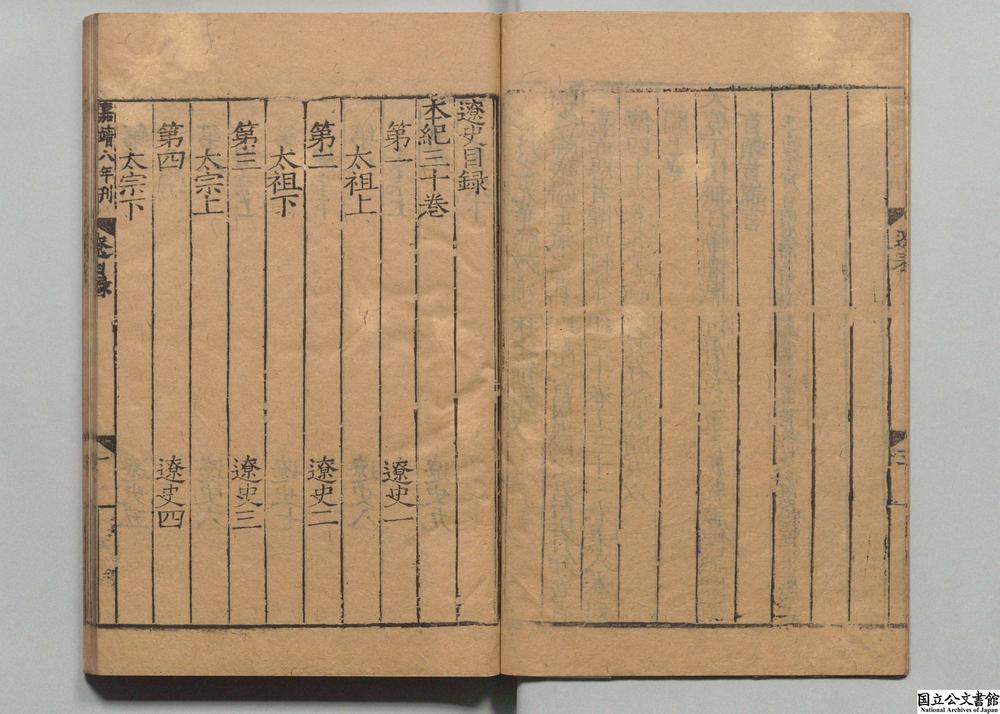 遼史目録
本紀三十巻
第一 遼史一
太祖上
第二 遼史二
太祖下
第三 遼史三
太宗上
第四 遼史四
太宗下
嘉靖八年刊 遼目録
国立公文書館
National Archives of Japan